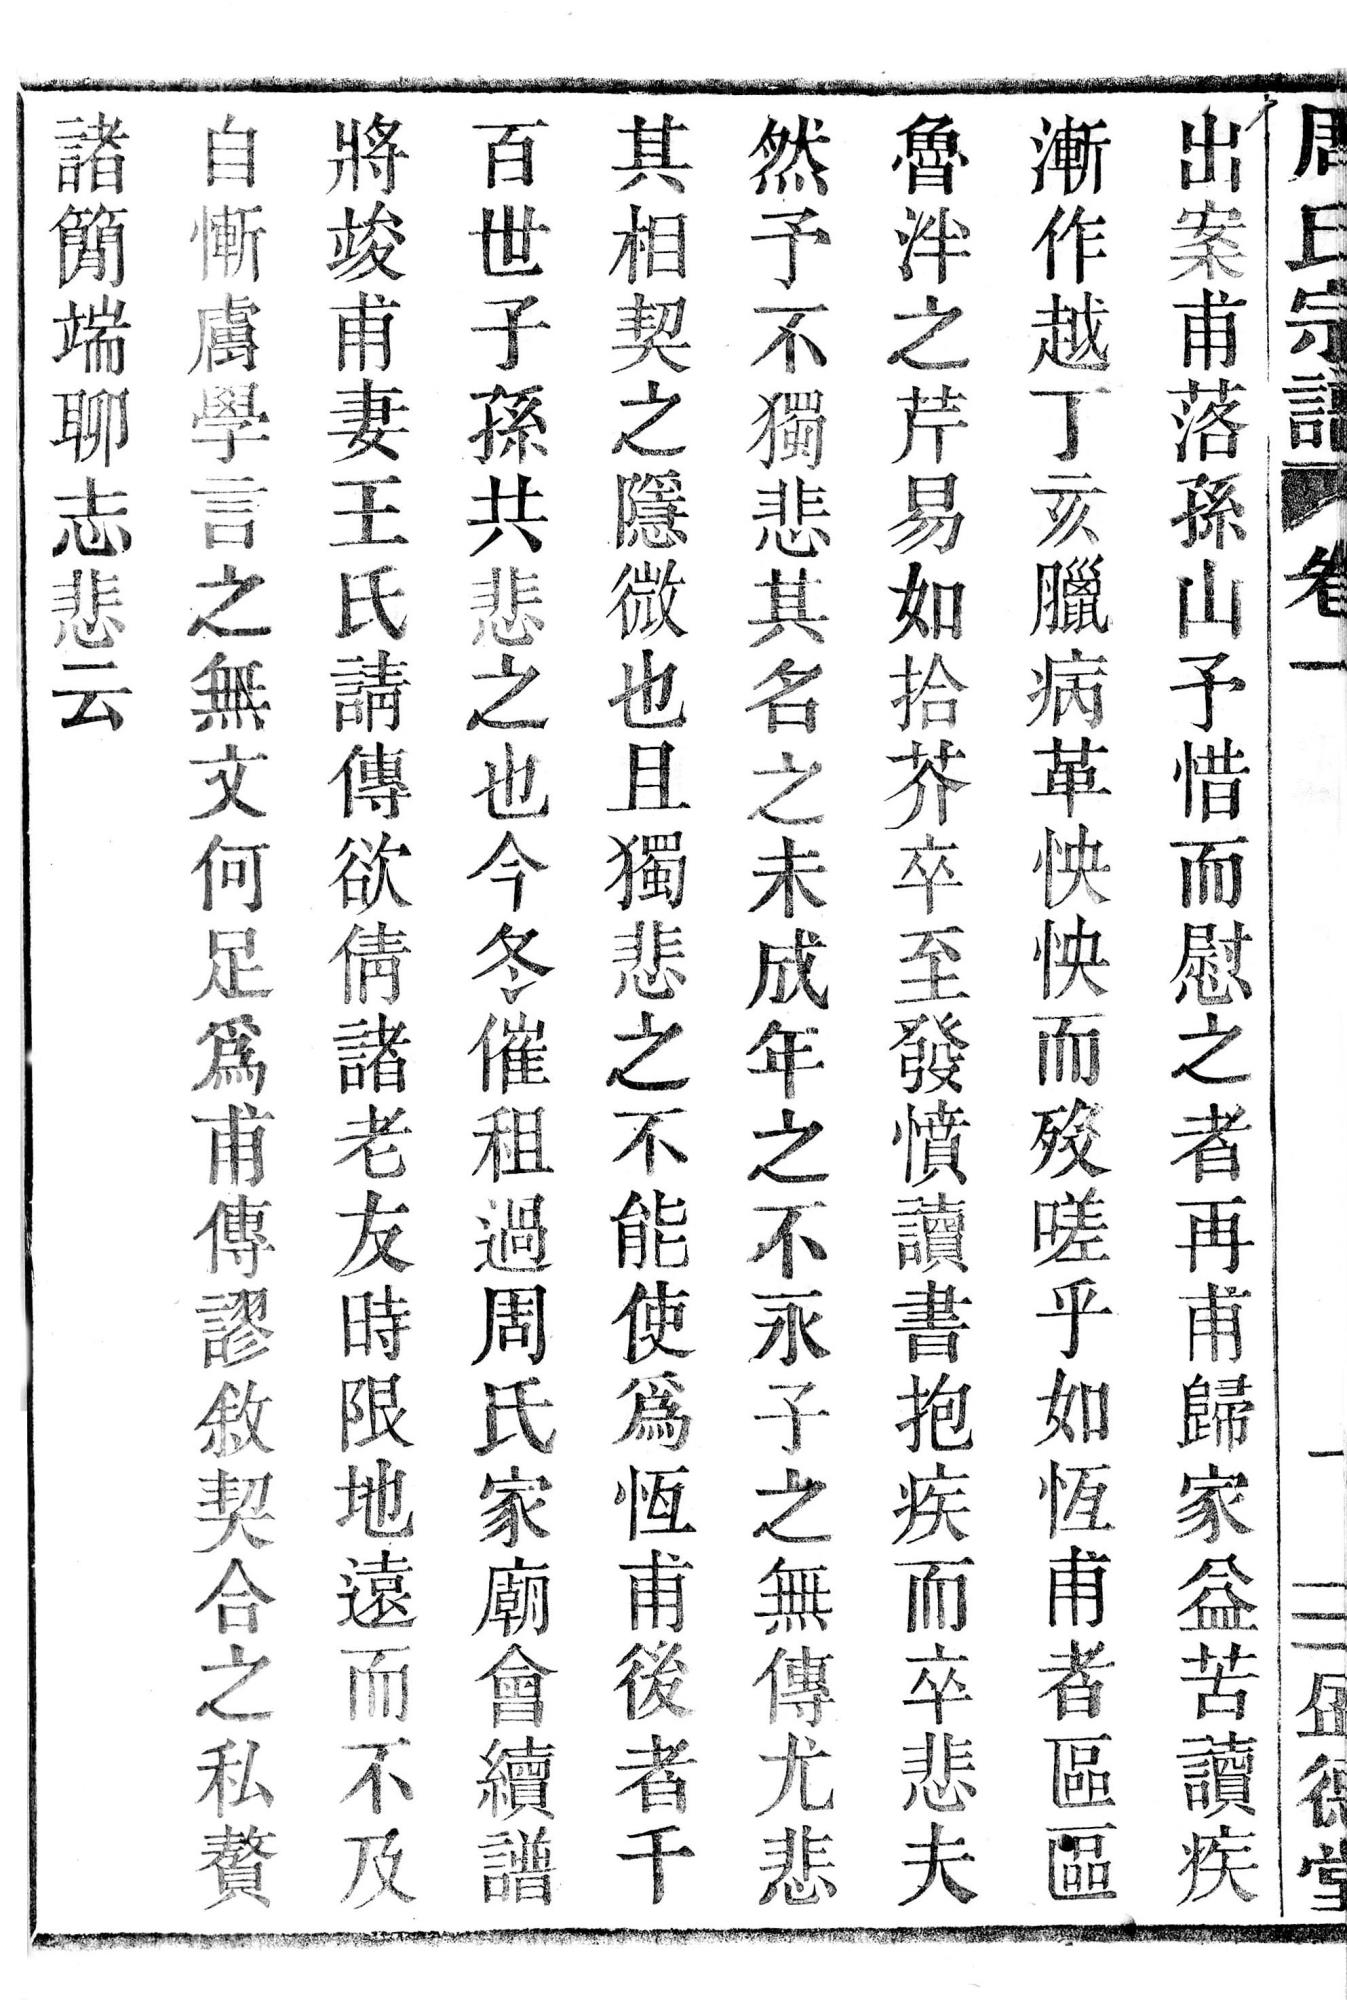 周氏宗譜 卷一 二 盛德堂
出案甫落孫山予惜而慰之者再甫歸家益苦讀疾
漸作越丁亥臘病革怏怏而歿嗟乎如恆甫者區區
魯泮之芹易如拾芥卒至發憤讀書抱疾而卒悲夫
然予不獨悲其名之未成年之不永子之無傳尤悲
其相契之隱微也且獨悲之不能使爲恆甫後者千
百世子孫共悲之也今冬催租過周氏家廟會續譜
將竣甫妻王氏請傳欲倩諸老友時限地遠而不及
自慚膚學言之無文何足爲甫傳謬敘契合之私贅
諸簡端聊志悲云